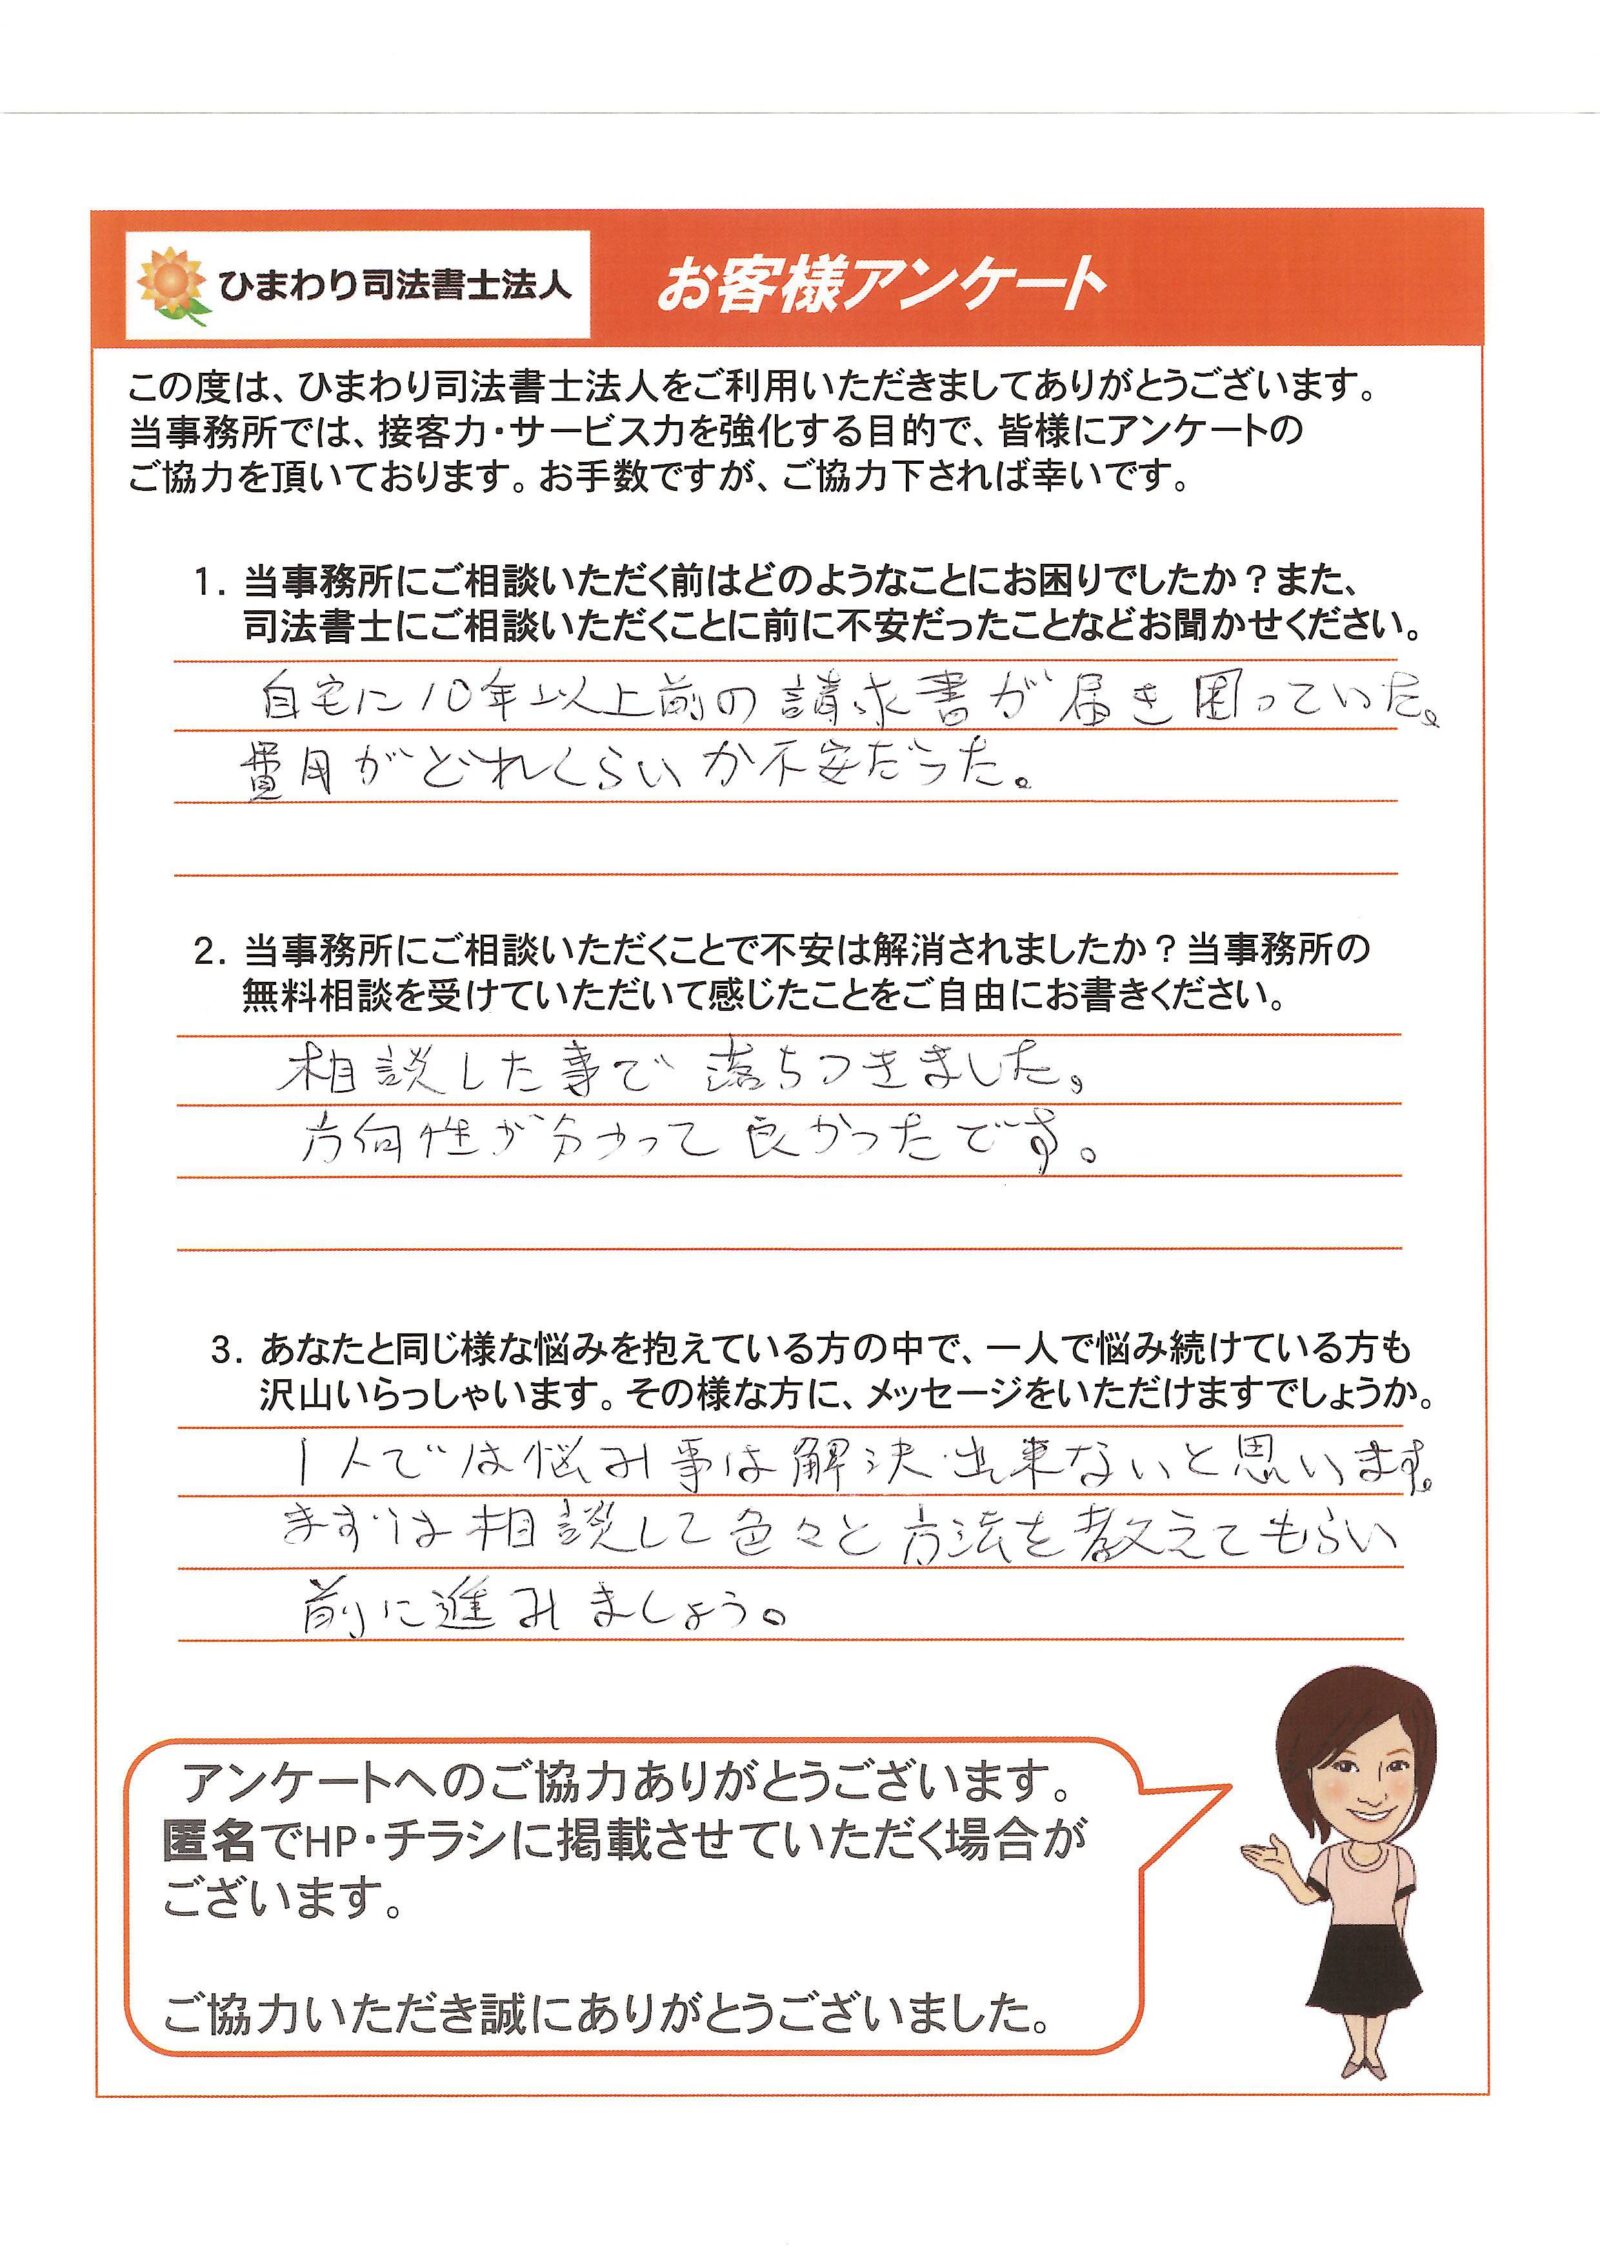 ひまわり司法書士法人
お客様アンケート
この度は、ひまわり司法書士法人をご利用いただきましてありがとうございます。
当事務所では、接客力・サービス力を強化する目的で、皆様にアンケートの
ご協力を頂いております。お手数ですが、ご協力下されば幸いです。
1. 当事務所にご相談いただく前はどのようなことにお困りでしたか？また、
司法書士にご相談いただくことに前に不安だったことなどお聞かせください。
自宅に10年以上前の請求書が届き困っていた。
費用がどれくらいか不安だった。
2. 当事務所にご相談いただくことで不安は解消されましたか？当事務所の
無料相談を受けていただいて感じたことをご自由にお書きください。
相談した事で落ちつきました。
方向性が分かって良かったです。
3. あなたと同じ様な悩みを抱えている方の中で、一人で悩み続けている方も
沢山いらっしゃいます。その様な方に、メッセージをいただけますでしょうか。
1人では悩み事は解決出来ないと思います。
まずは相談して色々と方法を教えてもらい
前に進みましょう。
アンケートへのご協力ありがとうございます。
匿名でHP・チラシに掲載させていただく場合が
ございます。
ご協力いただき誠にありがとうございました。